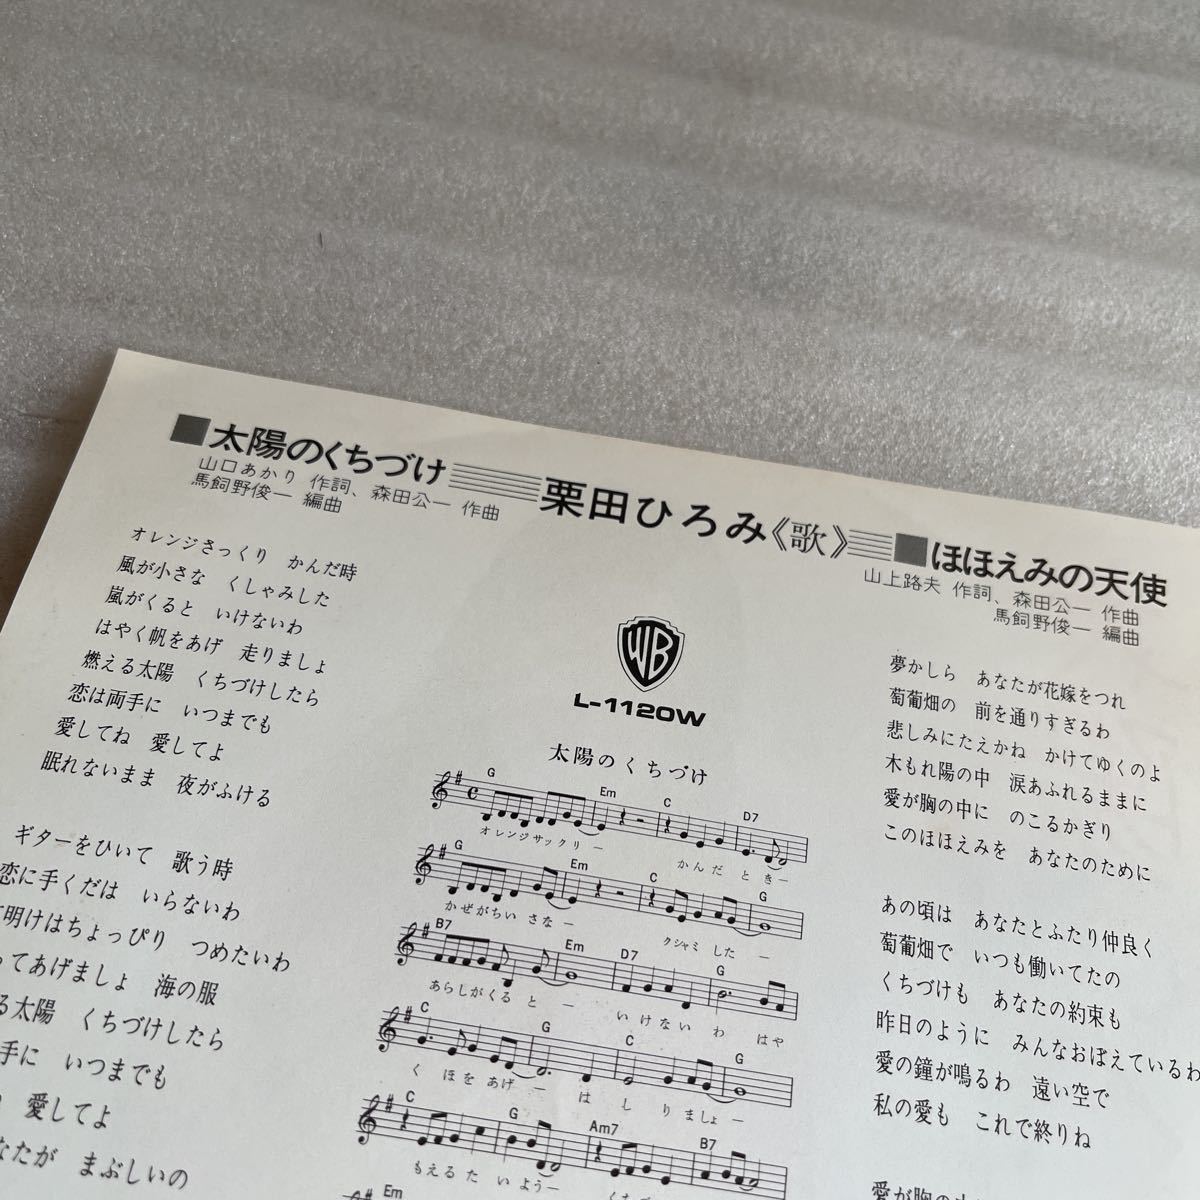 ■太陽のくちづけ
山口あかり 作詞、森田公一 作曲
馬飼野俊一 編曲
栗田ひろみ《歌》
■ほほえみの天使
山上路夫 作詞、森田公一 作曲
馬飼野俊一 編曲
オレンジさっくり かんだ時
風が小さな くしゃみした
嵐がくると いけないわ
はやく帆をあげ 走りましょ
燃える太陽 くちづけしたら
恋は両手に いつまでも
愛してね 愛してよ
眠れないまま 夜がふける
ギターをひいて 歌う時
恋に手くだは いらないわ
明けはちょっぴり つめたいわ
ってあげましょ 海の服
る太陽 くちづけしたら
手に いつまでも
愛してよ
なたが まぶしいの
WB
L-1120W
太陽のくちづけ
G Em C D7
オレンジサックリー かんだ ときー
G Em C G
かぜがちい さなー クシャミ したー
B7 Em D7 G
あらしがくる とー いけない わ はや
C G C G
く ほを あげー はしりましょ
C G Am7 B7
もえる た いようー くちづ
Em
夢かしら あなたが花嫁をつれ
萄葡畑の 前を通りすぎるわ
悲しみにたえかね かけてゆくのよ
木もれ陽の中 涙あふれるままに
愛が胸の中に のこるかぎり
このほほえみを あなたのために
あの頃は あなたとふたり仲良く
萄葡畑で いつも働いてたの
くちづけも あなたの約束も
昨日のように みんなおぼえているわ
愛の鐘が鳴るわ 遠い空で
私の愛も これで終りね
愛が胸の